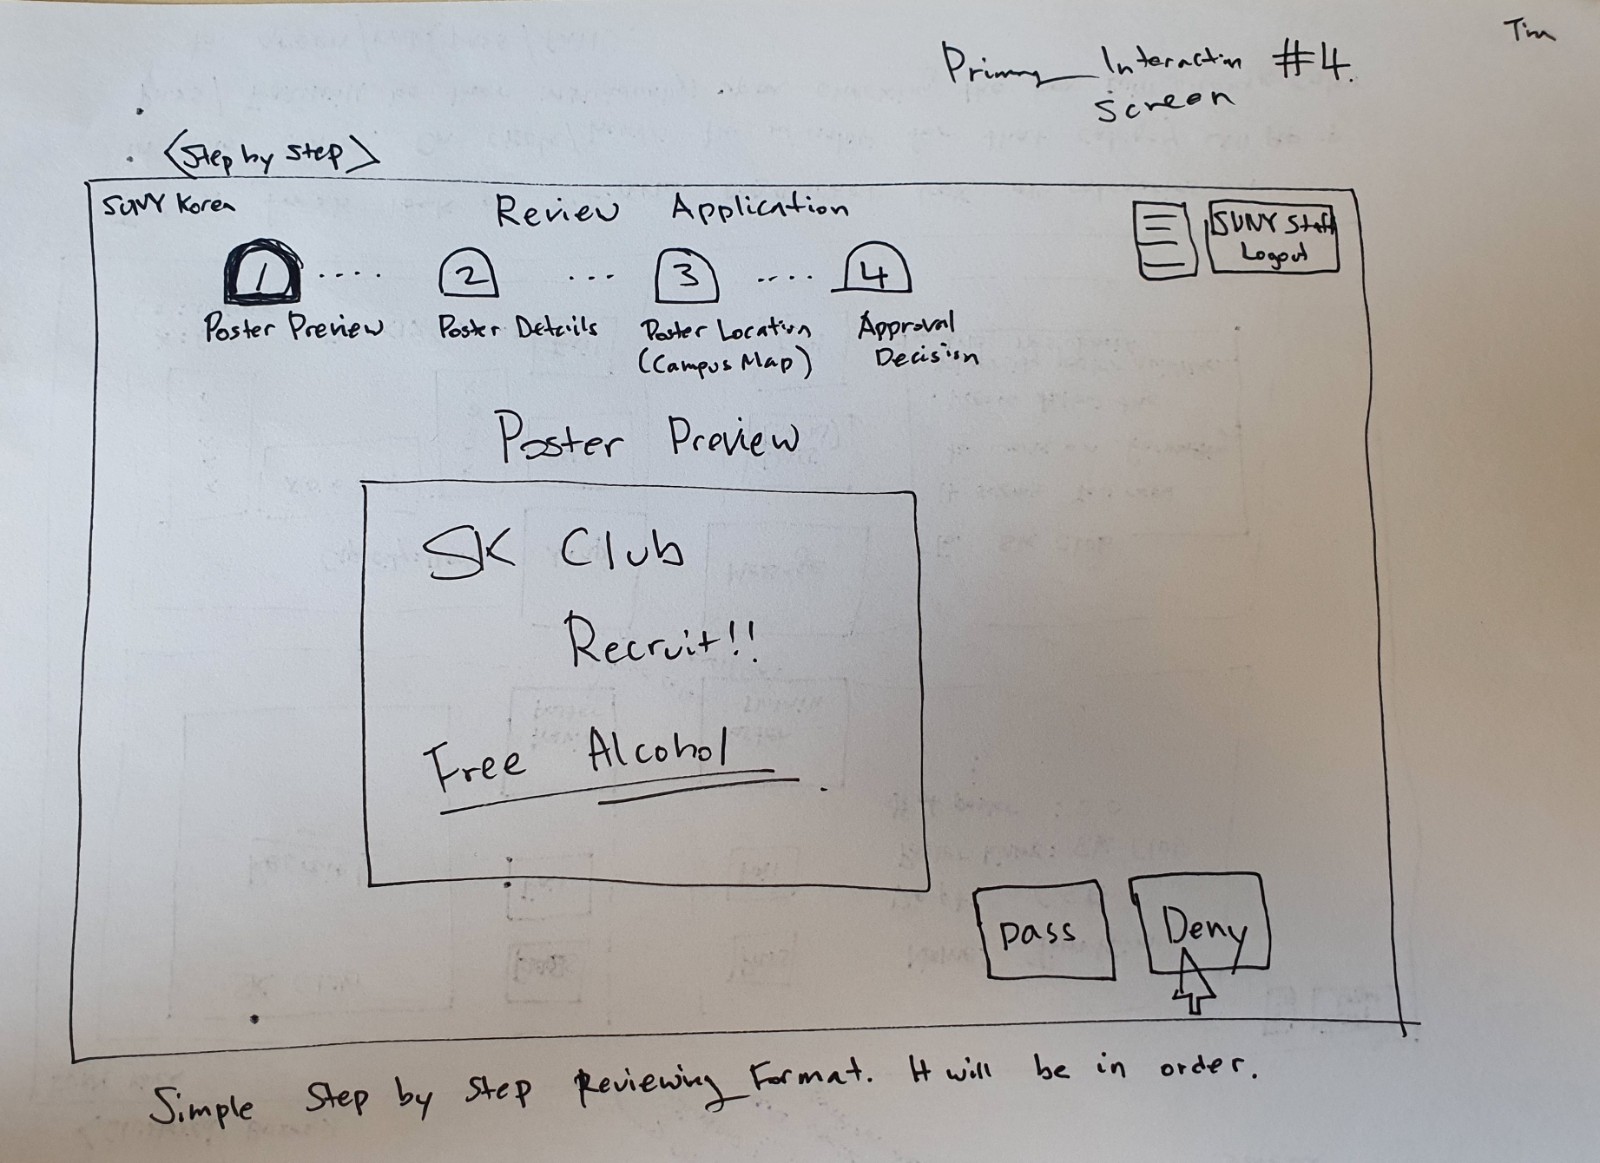 Tim
Primary Interaction #4.
Screen
<Step by Step>
SUNY Korea
Review Application
SUNY Staff
Logout
1 .... 2 ... 3 .... 4
Poster Preview
Poster Details
Poster Location
(Campus Map)
Approval
Decision
Poster Preview
SK Club
Recruit!!
Free Alcohol
Pass
Deny
Simple Step by Step Reviewing Format. It will be in order.